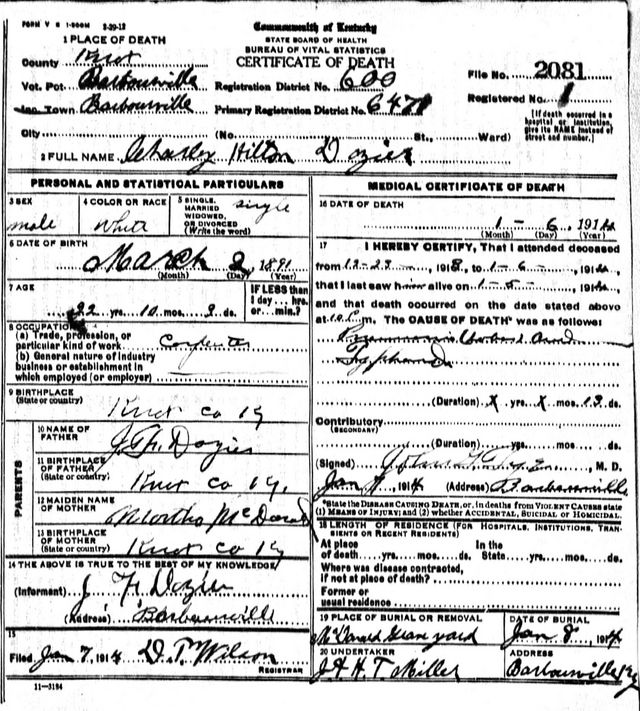 FORM V S 1-500M 8-29-13
Commonwealth of Kentucky
STATE BOARD OF HEALTH
BUREAU OF VITAL STATISTICS
CERTIFICATE OF DEATH
1 PLACE OF DEATH
County Knox
Vot. Pct. Barbourville Registration District No. 600 File No. 2081
Inc. Town Barbourville Primary Registration District No. 6471 Registered No. 1
City (No. St., Ward)
[If death occurred in a hospital or institution, give its NAME instead of street and number.]
2 FULL NAME Charley Hilton Dozier
PERSONAL AND STATISTICAL PARTICULARS
3 SEX male
4 COLOR OR RACE White
5 SINGLE, MARRIED WIDOWED, OR DIVORCED (Write the word) single
6 DATE OF BIRTH
March 2 1891
(Month) (Day) (Year)
7 AGE
22 yrs. 10 mos. ds.
IF LESS than 1 day ... hrs. or ... min.?
8 OCCUPATION
(a) Trade, profession, or particular kind of work
(b) General nature of industry business or establishment in which employed (or employer)
9 BIRTHPLACE
(State or country) Knox Co Ky
PARENTS
10 NAME OF FATHER Dozier
11 BIRTHPLACE OF FATHER (State or country) Knox Co Ky.
12 MAIDEN NAME OF MOTHER Martha McDonald
13 BIRTHPLACE OF MOTHER (State or country) Knox Co Ky
14 THE ABOVE IS TRUE TO THE BEST OF MY KNOWLEDGE
(Informant) Dozier
(Address) Barbourville
15
Filed Jan 7, 1914 D. T. Wilson
REGISTRAR
11-3184
MEDICAL CERTIFICATE OF DEATH
16 DATE OF DEATH
1 - 6, 1914
(Month) (Day) (Year)
17 I HEREBY CERTIFY, That I attended deceased
from 12-23-, 191 , to 1-6-, 1914,
that I last saw h alive on 1-5-, 1914,
and that death occurred on the date stated above
at m. The CAUSE OF DEATH* was as follows:
(Duration) X yrs. X mos. 13 ds.
Contributory
(SECONDARY)
(Duration) yrs. mos. ds.
(Signed) M. D.
Jan , 1914 (Address) Barbourville
*State the DISEASE CAUSING DEATH, or, in deaths from VIOLENT CAUSES state
(1) MEANS OF INJURY; and (2) whether ACCIDENTAL, SUICIDAL or HOMICIDAL.
18 LENGTH OF RESIDENCE (FOR HOSPITALS, INSTITUTIONS, TRANSIENTS OR RECENT RESIDENTS)
At place of death yrs. mos. ds. In the State yrs. mos. ds.
Where was disease contracted,
If not at place of death?
Former or
usual residence
19 PLACE OF BURIAL OR REMOVAL DATE OF BURIAL
McDonald Graveyard Jan 8, 1914
20 UNDERTAKER ADDRESS
J & H T Miller Barbourville Ky